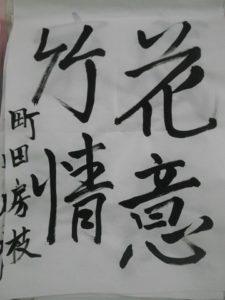 花意
竹情
町田房枝